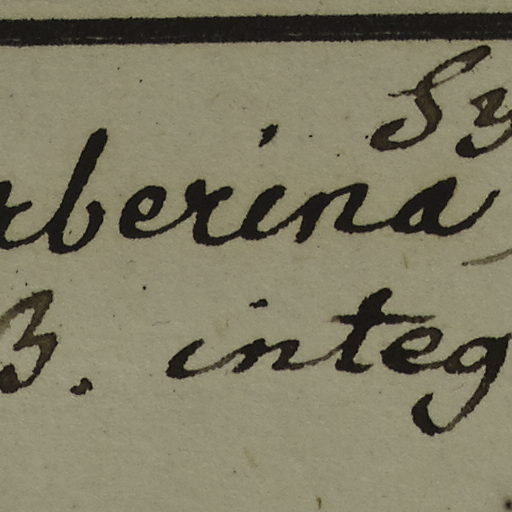 Sy
rberina
B. integ